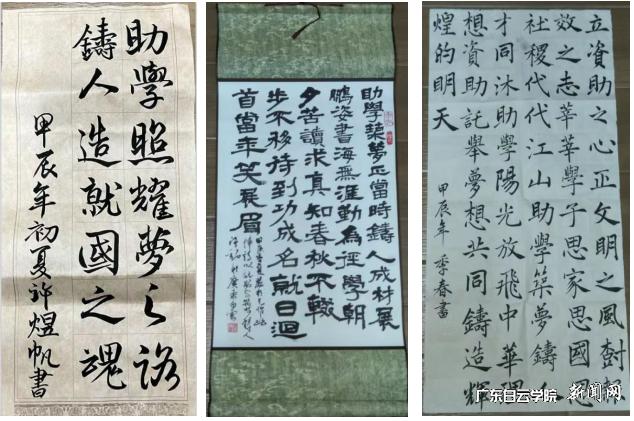 助學照耀夢之路
鑄人造就國之魂
甲辰年初夏許煜帆書
助學築夢正當時鑄人成材展
鵬姿書海無涯勤為徑學朝
夕苦讀求真知春秋不輟
步不移待到功成名就日迴
首當年笑展眉
立資助之心正文明之風樹報
效之志莘莘學子思家思國思
社稷代代江山助學築夢鑄人
才同沐助學陽光放飛中華理
想資助託舉夢想共同鑄造輝
煌的明天
甲辰年季春書
广东白云学院 新闻网